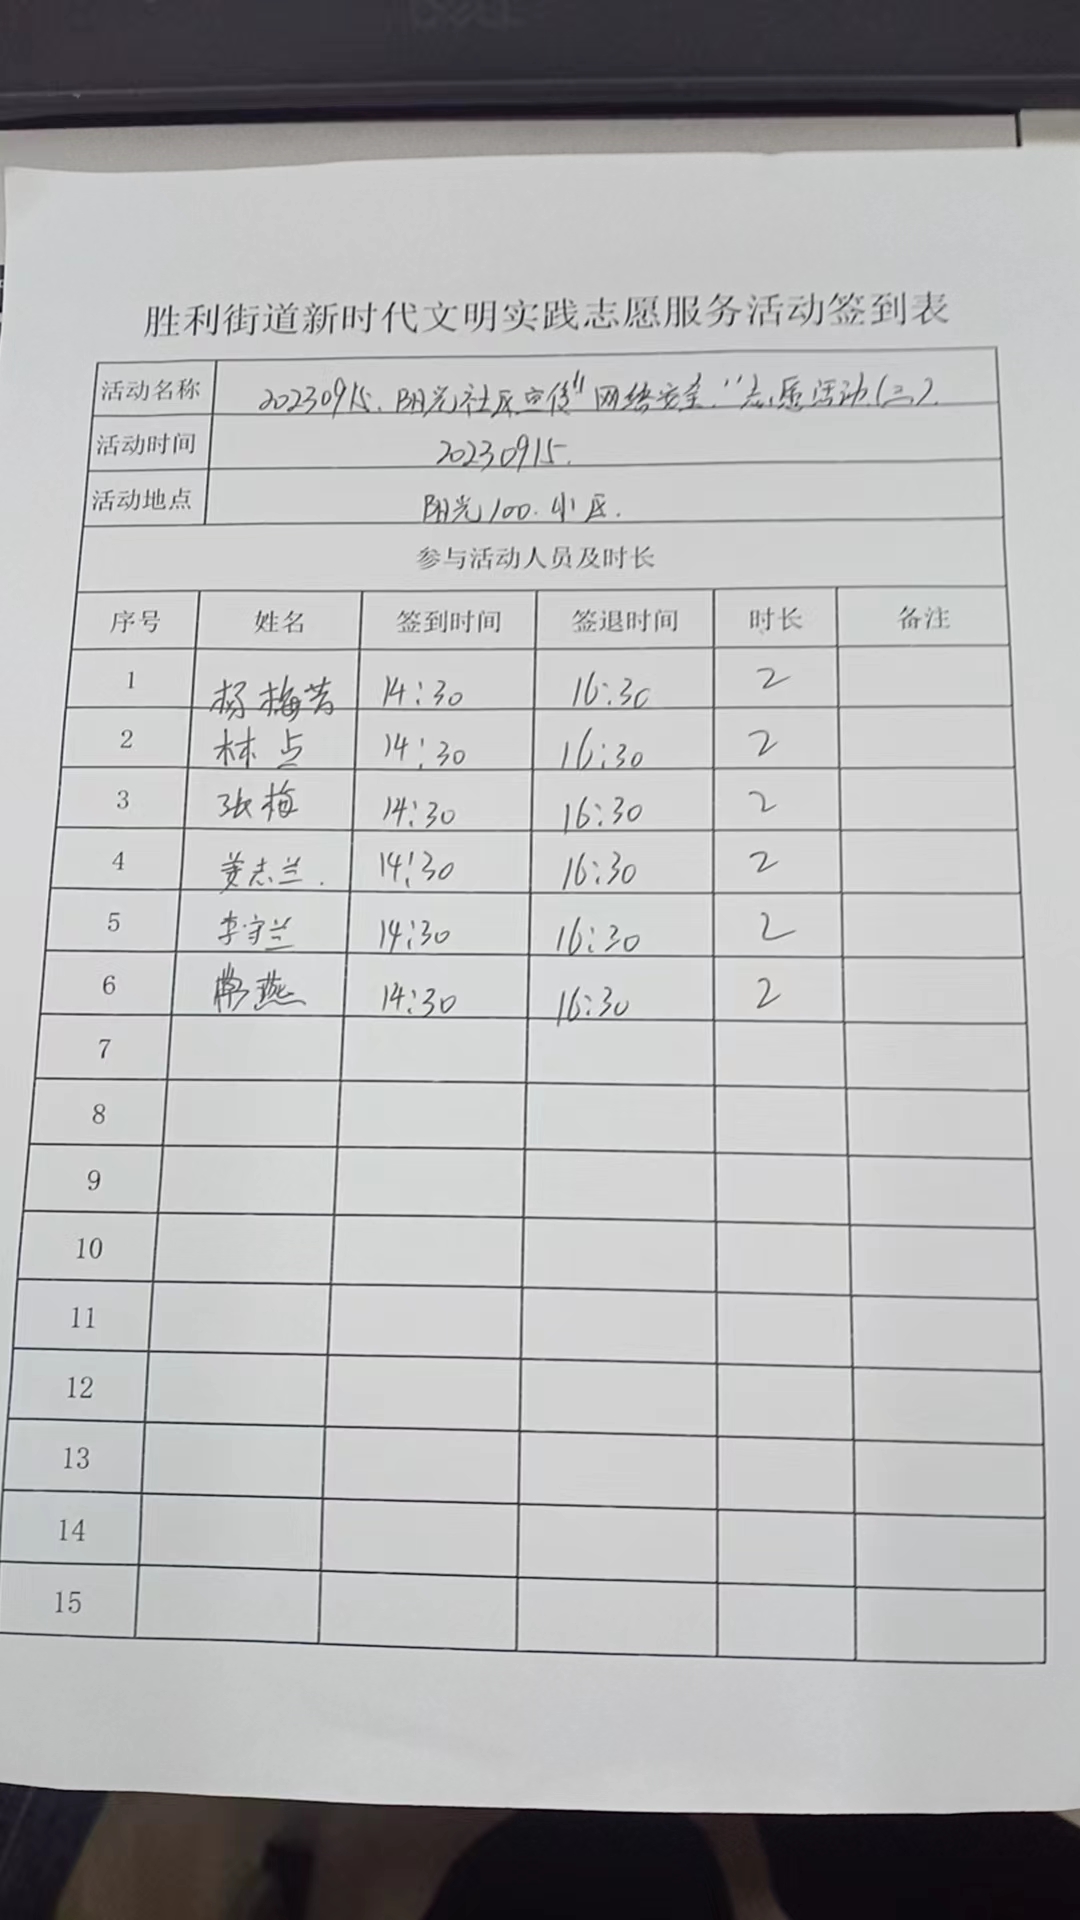 胜利街道新时代文明实践志愿服务活动签到表
活动名称 20230915.阳光社区宣传"网络安全"志愿活动(三).
活动时间 20230915.
活动地点 阳光100.小区.
参与活动人员及时长
序号 姓名 签到时间 签退时间 时长 备注
1 杨梅芳 14:30 16:30 2
2 林点 14:30 16:30 2
3 张梅 14:30 16:30 2
4 姜志兰. 14:30 16:30 2
5 李守兰 14:30 16:30 2
6 常燕 14:30 16:30 2
7
8
9
10
11
12
13
14
15